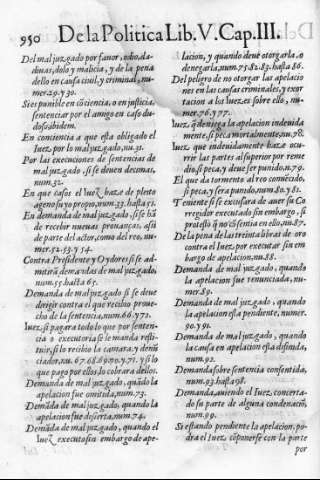 950 De la Politica Lib. V. Cap. III.
Del mal juzgado por fauor, odio, da-
diuas, dolo y malicia, y de la pena
dello en causa ciuil, y criminal, nu-
mer. 29. y 30.
Si es punible en cõciencia, o en justicia,
sentenciar por el amigo en caso du-
doso. ibidem.
En conciencia a que està obligado el
Iuez por lo mal juzgado, nu. 31.
Por las execuciones de sentencias de
mal juzgado, si se deuen decimas,
num. 32.
En que casos el Iuez haze de pleto
ageno suyo propio, num. 33. hasta 51.
En demanda de mal juzgado, si se hã
de recebir nueuas prouanças, assi
de parte del actor, como del reo, nu-
mer. 52. 53. y 54.
Contra Presidente y Oydores si se ad-
mitirà demãdas de mal juzgado,
num. 55. hasta 65.
Demanda de mal juzgado si se deue
dirigir contra el que recibio proue-
cho de la sentencia, num. 66. y 72.
Iuez, si pagara todo lo que por senten-
cia o executoria se le manda resti-
tuir, si lo recibio la camara, y denũ
ciador, nu. 67. 68. 69. 70. y 71. y si lo
que pago por ellos lo cobrara dellos.
Demanda de mal juzgado, quãdo la
apelacion fue omitida, num. 73.
Demãda de mal juzgado, quando la
apelacion fue desierta, num. 74.
Demãda de mal juzgado, quando el
Iuez executo sin embargo de ape-
lacion, y quando deue otorgarla, o
denegarla, num. 75. 82. 83. hasta 86.
Del peligro de no otorgar las apelacio
nes en las causas criminales, y exor
tacion a los Iuezes sobre ello, nu-
mer. 76. y 77.
Iuez, q̃ deniega la apelacion indeuida
mente, si peca mortalmente, nu. 78.
Iuez que indeuidamente haze ocu-
rrir las partes al superior por reme
dio, si peca, y deue ser punido, n. 79.
El que da tormento al reo conuẽcido,
si peca, y sera punido, num. 80. y 81.
Teniente si se escusara de auer su Co
rregidor executado sin embargo, si
protestò q̃ no cõsentia en ello, nu. 87.
De la pena de las treinta libras de oro
contra el Iuez, por executar sin em
bargo de apelacion, nu. 88.
Demanda de mal juzgado, quando
la apelacion fue renunciada, nu-
mer. 89.
Demanda de mal juzgado, quando
la apelacion esta pendiente, numer.
90. y 91.
Demanda de mal juzgado, quando
la causa en apelacion esta difinida,
num. 92.
Demanda sobre sentencia consentida,
num. 93. hasta 98.
Demanda, auiendo el Iuez, concerta-
do su parte de alguna condenaciõ,
num. 99.
Si estando pendiente la apelacion, po-
dra el Iuez cõponerse con la parte
por